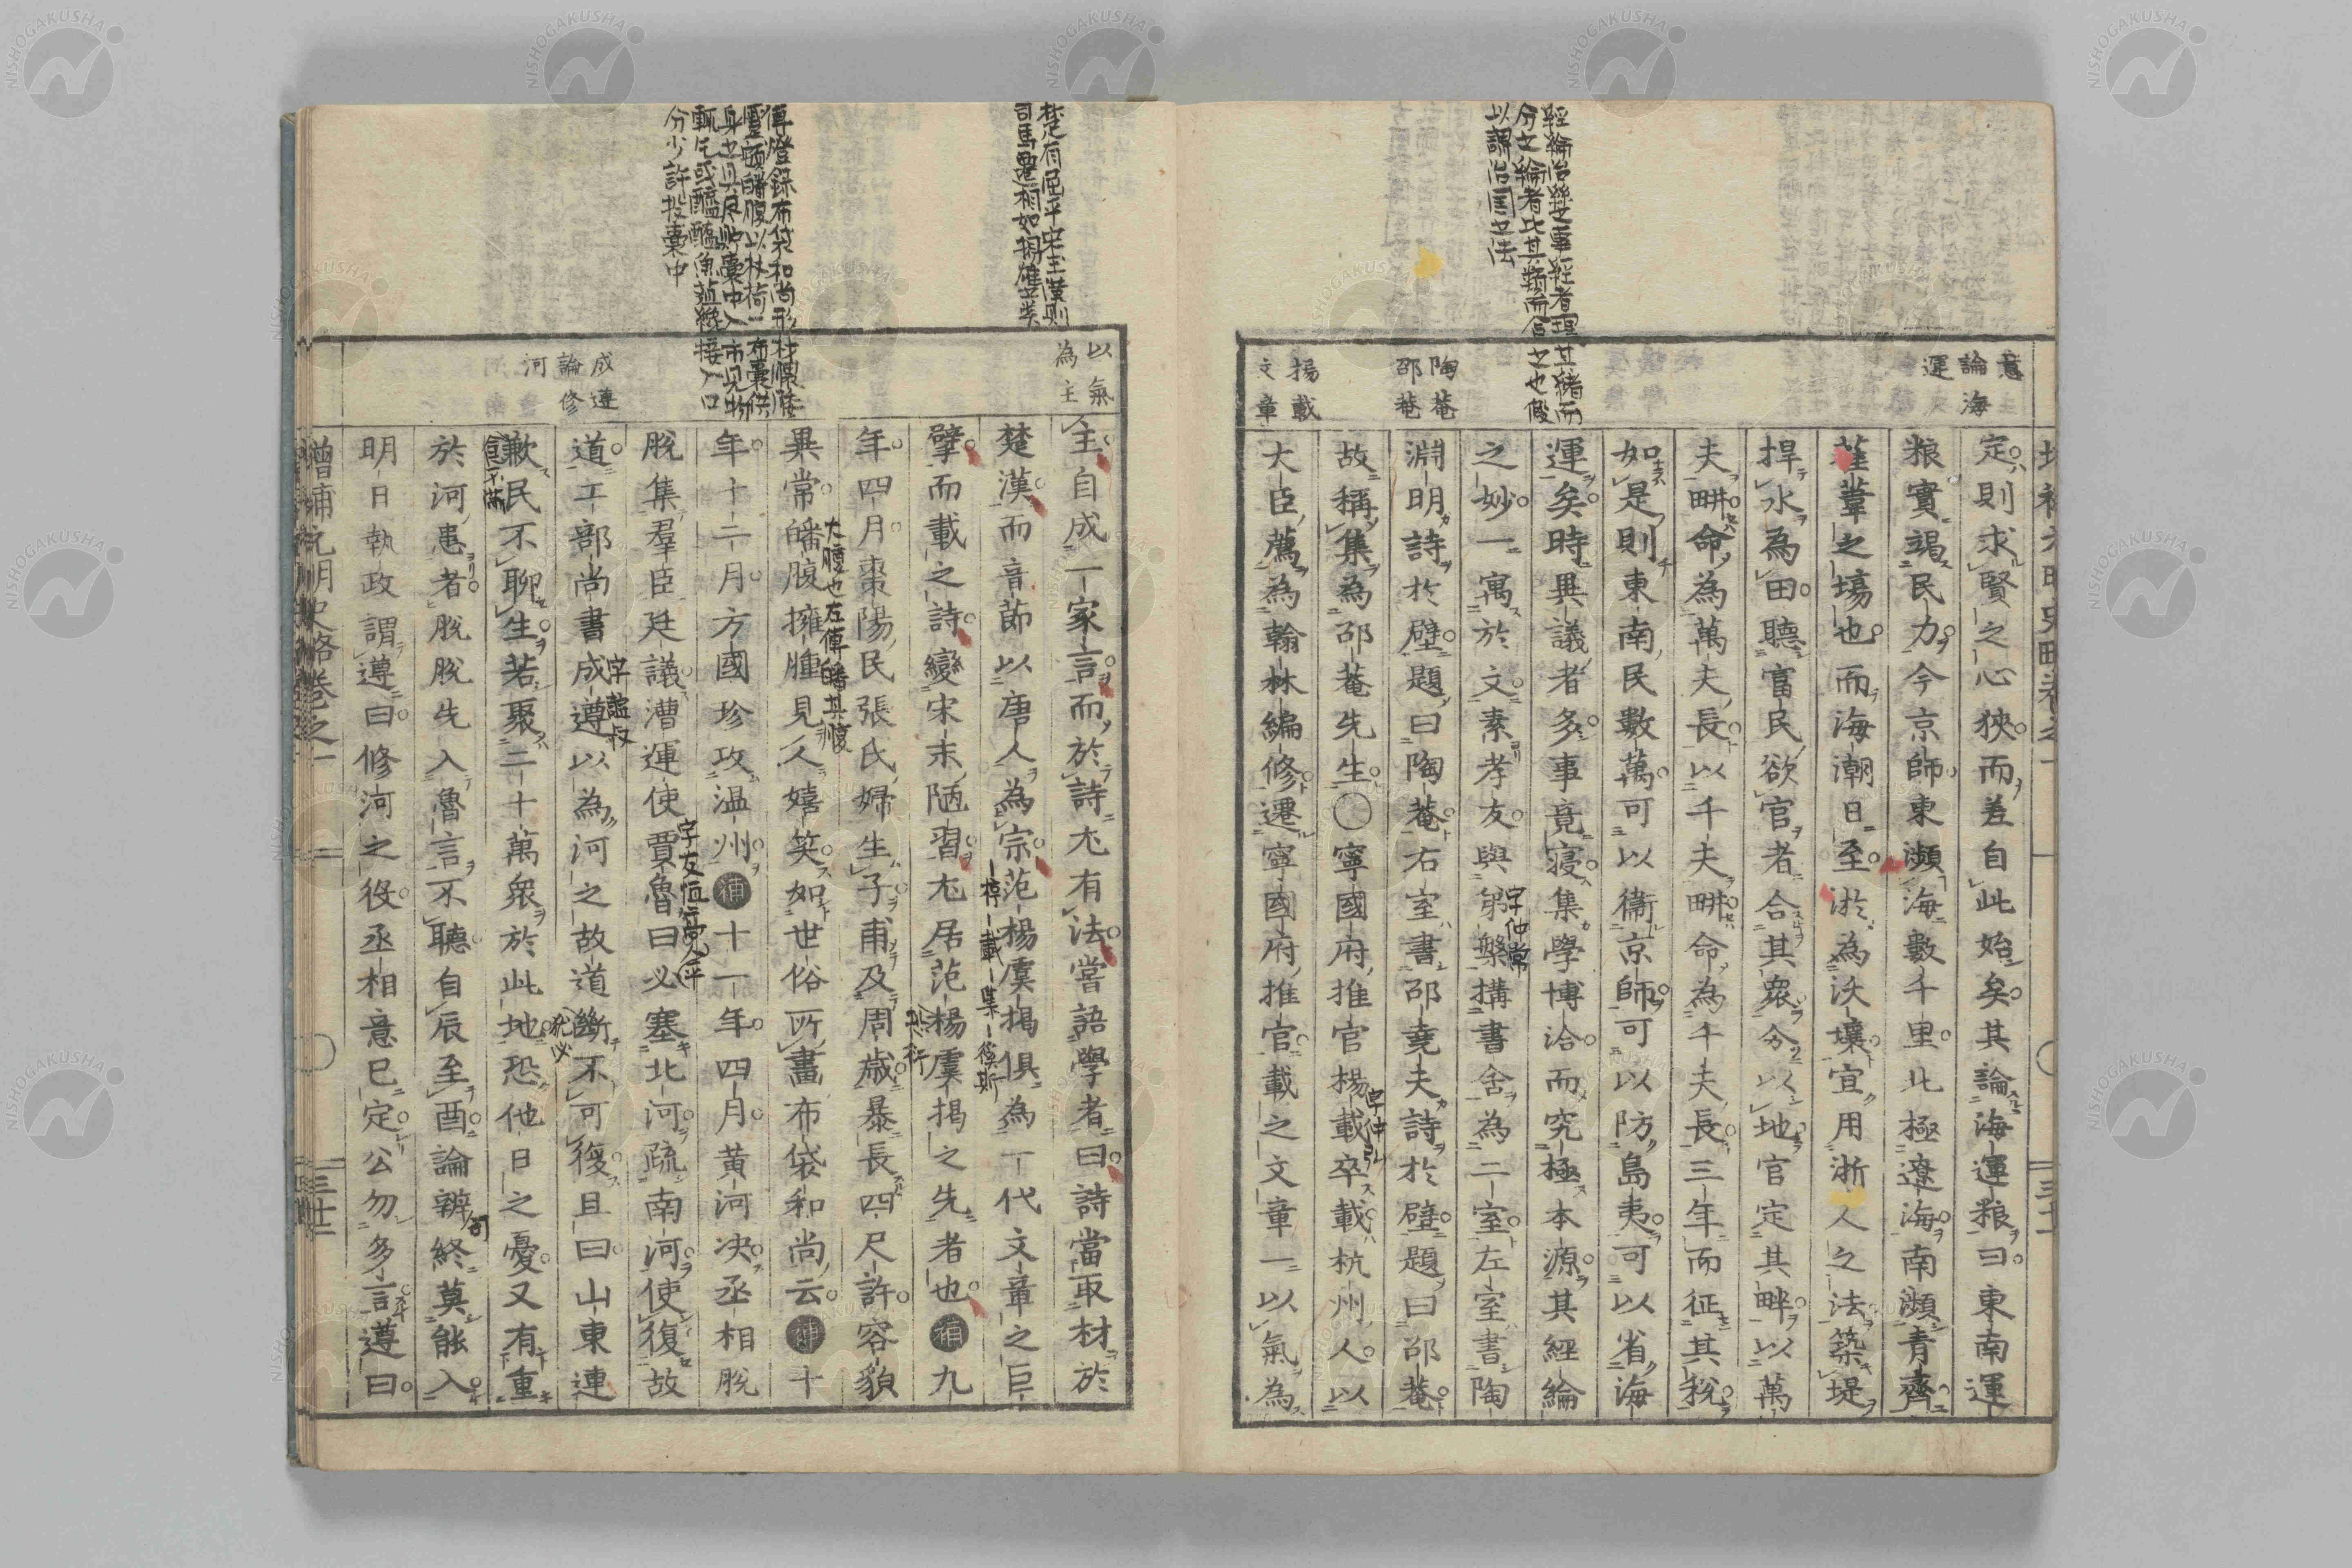 意論海運
定則求賢之心狹而差自此始矣其論海運粮曰東南運
粮實竭民力今京師東瀕海數千里北極遼海南瀕青齊
萑葦之場也而海潮日至淤為沃壤宜用浙人之法築堤
捍水為田聽富民欲官者合其衆分以地官定其畔以萬
夫畊命為萬夫長以千夫畊命為千夫長三年而征其税
如是則東南民數萬可以衞京師可以防島夷可以省海
運矣時異議者多事竟寢集學博洽而究極本源其經綸
之妙一寓於文素孝友與弟槃搆書舍為二室左室書陶
淵明詩於壁題曰陶菴右室書邵堯夫詩於壁題曰邵菴
故稱集為邵菴先生〇寧國府推官楊載卒載杭州人以
大臣薦為翰林編修遷寧國府推官載之文章一以氣為
陶菴邵菴
揚載文章
經綸治絲之事經者理其緒而
分之綸者比其類而合之也假
以謂治国之法
字仲常
以氣為主
主自成一家言而於詩尤有法當語學者曰詩當取材於
楚漢而音節以唐人為宗范楊虞揭俱為一代文章之巨
擘而載之詩變宋末陋習尤居范楊虞揭之先者也補九
年四月棗陽民張氏婦生子甫及周歳暴長四尺許容貌
異常皤腹擁腫見人嬉笑如世俗所畫布袋和尚云補十
年十二月方國珍攻温州補十一年四月黄河决丞相脫
脫集羣臣廷議漕運使賈魯曰必塞北河疏南河使復故
道工部尚書成遵以為河之故道斷不可復且曰山東連
歉民不聊生若聚二十萬衆於此地恐他日之憂又有重
於河患者脫脫先入魯言不聽自辰至酉論辨終莫能入
明日執政謂遵曰修河之役丞相意已定公勿多言遵曰
成遵論修河
楚有屈平宋玉漢則
司馬遷相如揚雄类
傳燈錄布袋和尚形材腲脮
蹙頞皤腹以杖荷一布囊供
身之具尽貯囊中入市見物
輒乞或醯醢魚菹纔接入口
分少許投囊中
梈 載 集 傒斯
大腹也左傳皤其腹
字友恒高平
字誼叔
食不滿
增補元明史略卷之一
三十二